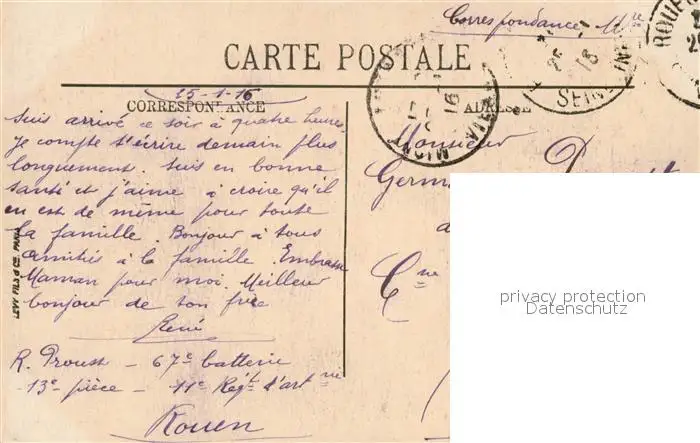 Correspondance Mre
CARTE POSTALE
25-1-16
CORRESPONDANCE
ADRESSE
suis arrivé ce soir à quatre heures.
Je compte t'écrire demain plus
longuement. Suis en bonne
santé et j'aime à croire qu'il
en est de même pour toute
la famille. Bonjour à tous
amitiés à la famille. Embrasse
Maman pour moi. Meilleur
bonjour de ton frère
René
R. Proust - 67e batterie
-13e pièce - 11e Régt d'artrie
Rouen
Monsieur
Germ
Cne
LEVY FILS & Cie PARIS
ROUE
SEINE INF
16
privacy protection
Datenschutz